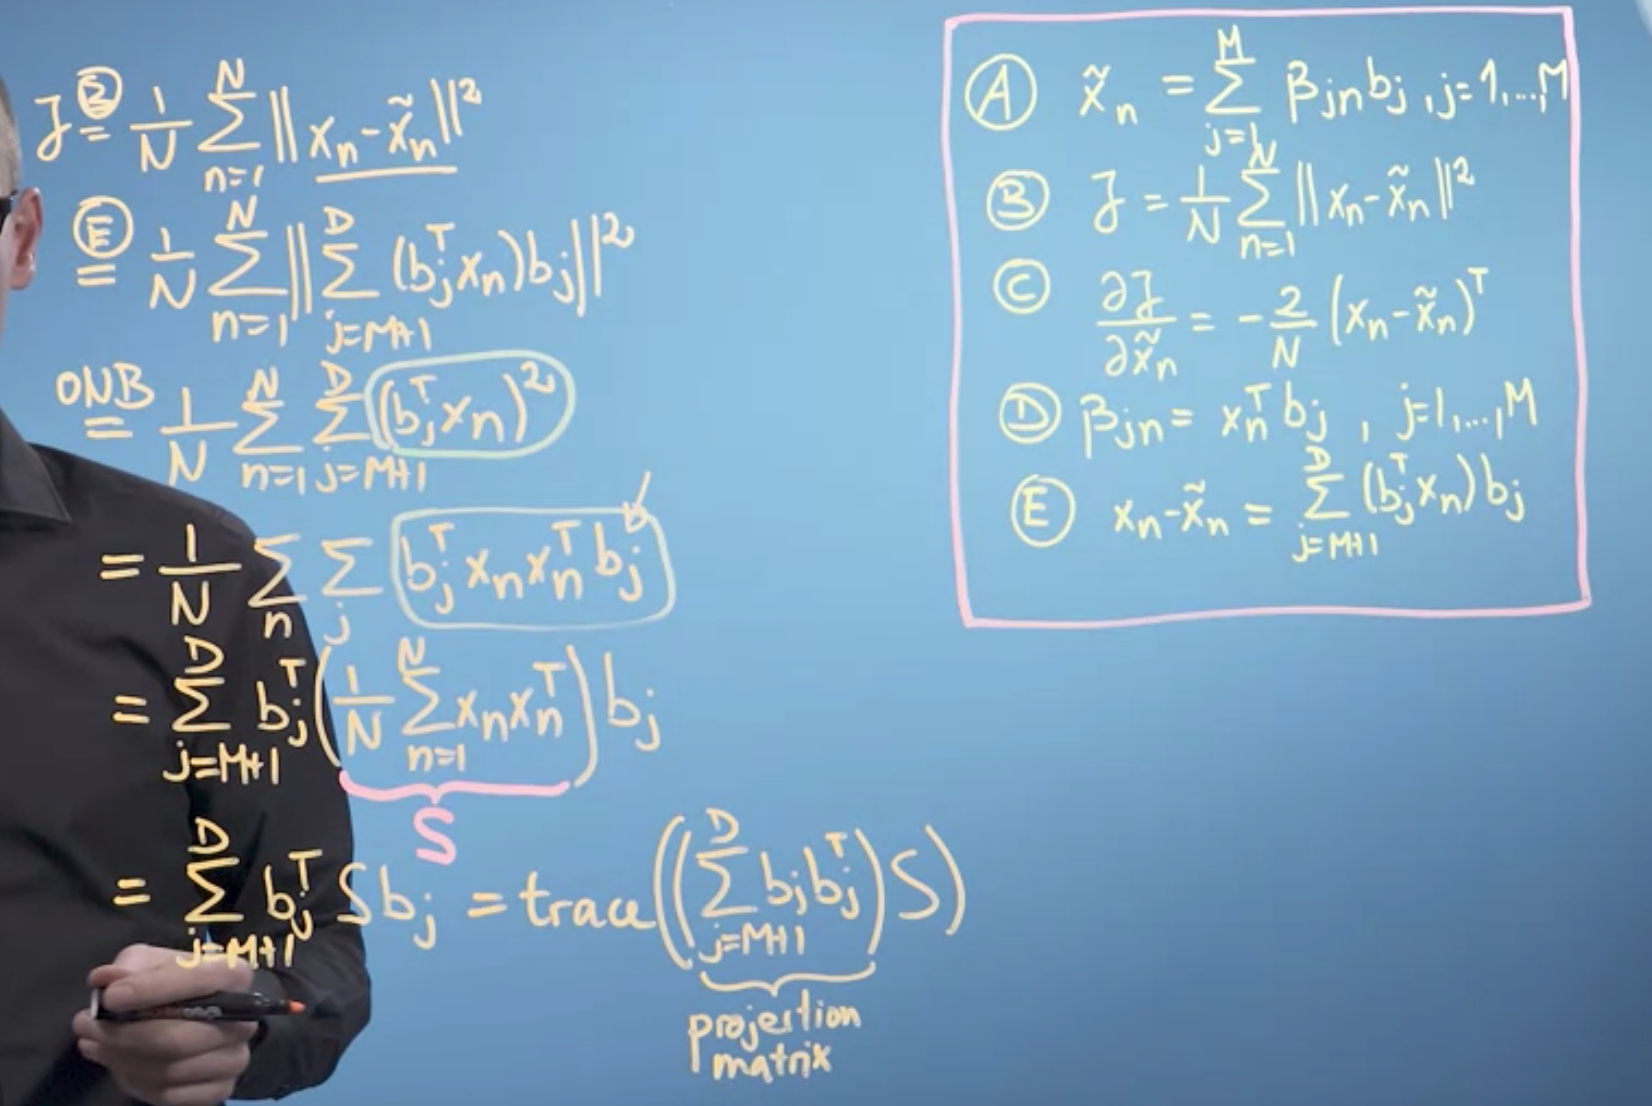 J Ⓑ= 1/N ∑_{n=1}^{N} ||x_n - x̃_n||²
Ⓔ= 1/N ∑_{n=1}^{N} ||∑_{j=M+1}^{D} (b_j^T x_n) b_j||²
ONB= 1/N ∑_{n=1}^{N} ∑_{j=M+1}^{D} (b_j^T x_n)²
= 1/N ∑_n ∑_j b_j^T x_n x_n^T b_j
= ∑_{j=M+1}^{D} b_j^T (1/N ∑_{n=1}^{N} x_n x_n^T) b_j
S
= ∑_{j=M+1}^{D} b_j^T S b_j = trace((∑_{j=M+1}^{D} b_j b_j^T) S)
projection
matrix
Ⓐ x̃_n = ∑_{j=1}^{M} β_{jn} b_j , j=1,...,M
Ⓑ J = 1/N ∑_{n=1}^{N} ||x_n - x̃_n||²
Ⓒ ∂J/∂x̃_n = -2/N (x_n - x̃_n)^T
Ⓓ β_{jn} = x_n^T b_j , j=1,...,M
Ⓔ x_n - x̃_n = ∑_{j=M+1}^{D} (b_j^T x_n) b_j